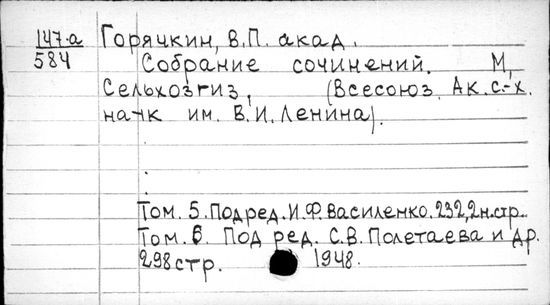 147-а Горячкин, В.П. акад.
584 Собрание сочинений. М,
Сельхозгиз, (Всесоюз. Ак. с.-х.
наук им. В.И. Ленина).
Том. 5. Под ред. И.Ф. Василенко. 232,2 н. стр.
Том. 6. Под ред. С.В. Полетаева и др.
298 стр. 1948.